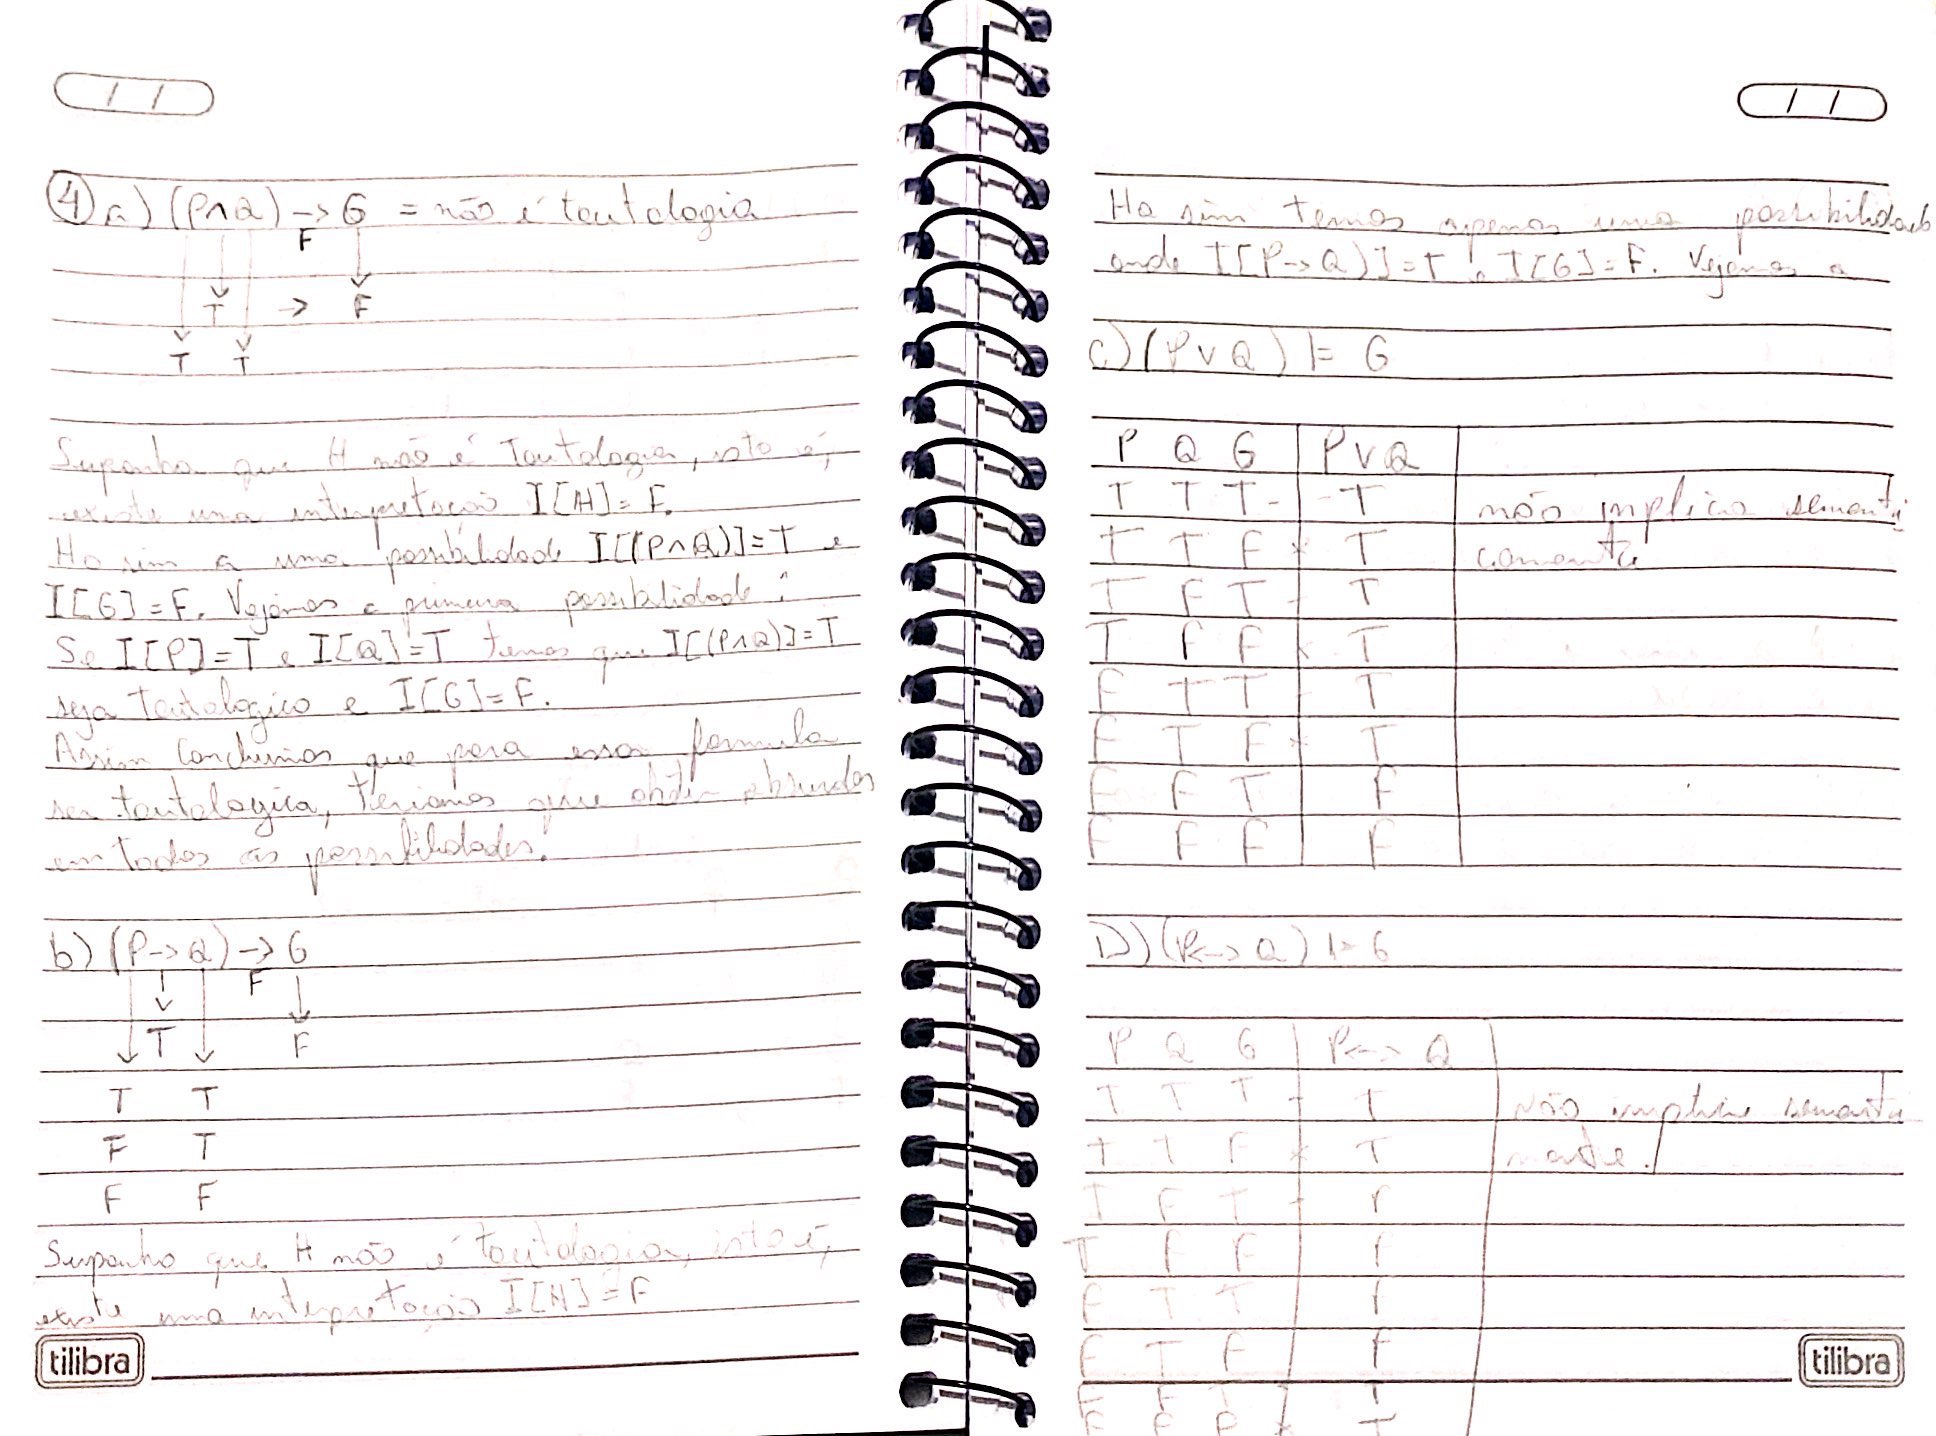 4) a) (P∧Q) → G = não é tautologia
F
T → F
T T
Suponha que H não é Tautologia, isto é,
existe uma interpretação I[H]=F.
Ha sim a uma possibilidade I[(P∧Q)]=T e
I[G]=F. Vejamos a primeira possibilidade:
Se I[P]=T e I[Q]=T temos que I[(P∧Q)]=T
seja tautologico e I[G]=F.
Assim Concluimos que para essa formula
ser tautologica, teriamos que obter absurdos
em todas as possibilidades.
b) (P→Q) → G
F
T F
T T
F T
F F
Suponho que H não é tautologia, isto é,
existe uma interpretação I[H]=F
tilibra
Ha sim temos apenas uma possibilidade
onde I[P→Q)]=T e I[G]=F. Vejamos a
c) (P∨Q) ⊨ G
P Q G P∨Q
T T T - T não implica semanti
T T F * T camente
T F T - T
T F F * T
F T T - T
F T F * T
F F T F
F F F F
D) (P↔Q) ⊨ G
P Q G P↔Q
T T T - T não implica semanti
T T F * T mente.
T F T - F
T F F F
F T T F
F T F F
F F T T
F F F * T
tilibra